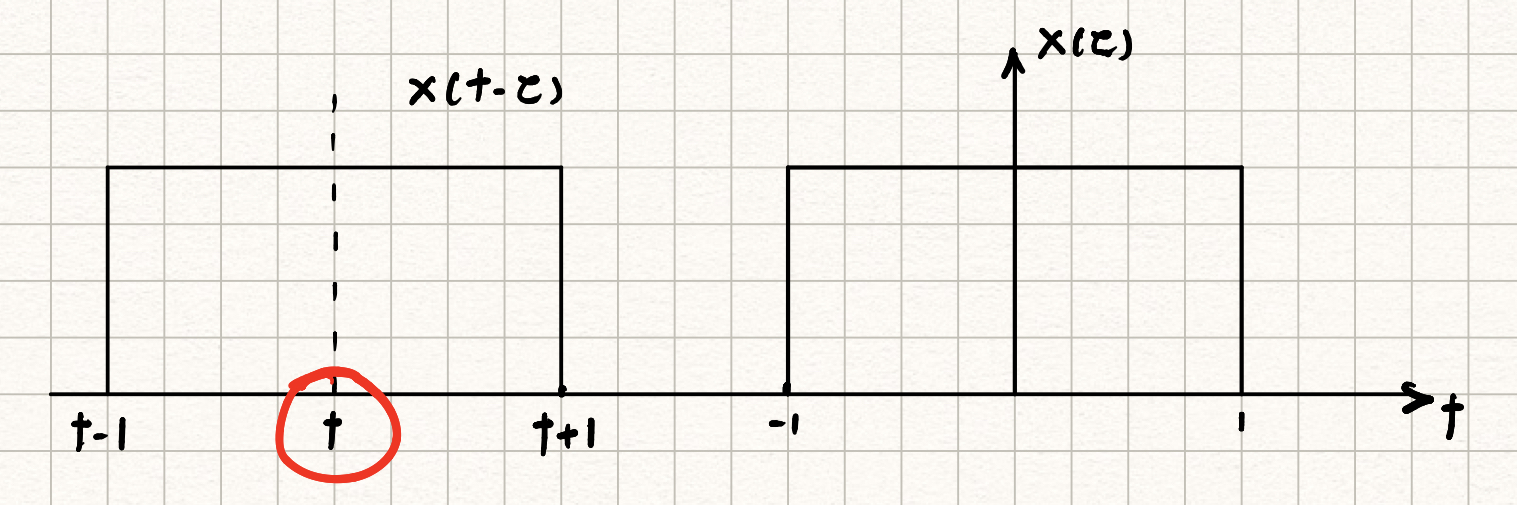 x(t-τ)
x(τ)
t-1
t
t+1
-1
1
t